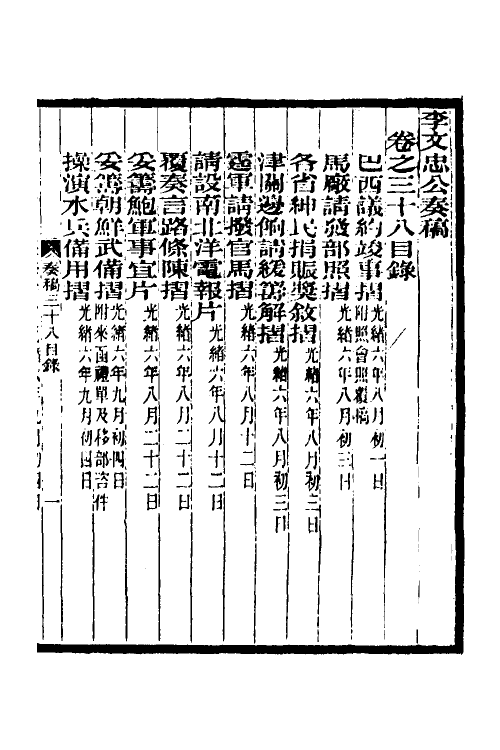 李文忠公奏稿
卷之三十八目錄
巴西議約竣事摺 光緒六年八月初一日 附照會照覆稿
馬廠請發部照摺 光緒六年八月初三日
各省紳民捐賑獎敘摺 光緒六年八月初三日
津關邊餉請緩籌解摺 光緒六年八月初三日
霆軍請撥官馬摺 光緒六年八月十二日
請設南北洋電報片 光緒六年八月十二日
覆奏言路條陳摺 光緒六年八月二十二日
妥籌鮑軍事宜片 光緒六年八月二十二日
妥籌朝鮮武備摺 光緒六年九月初四日 附來函禮單及移部咨件
操演水兵備用摺 光緒六年九月初四日
奏稿三十八目錄
一